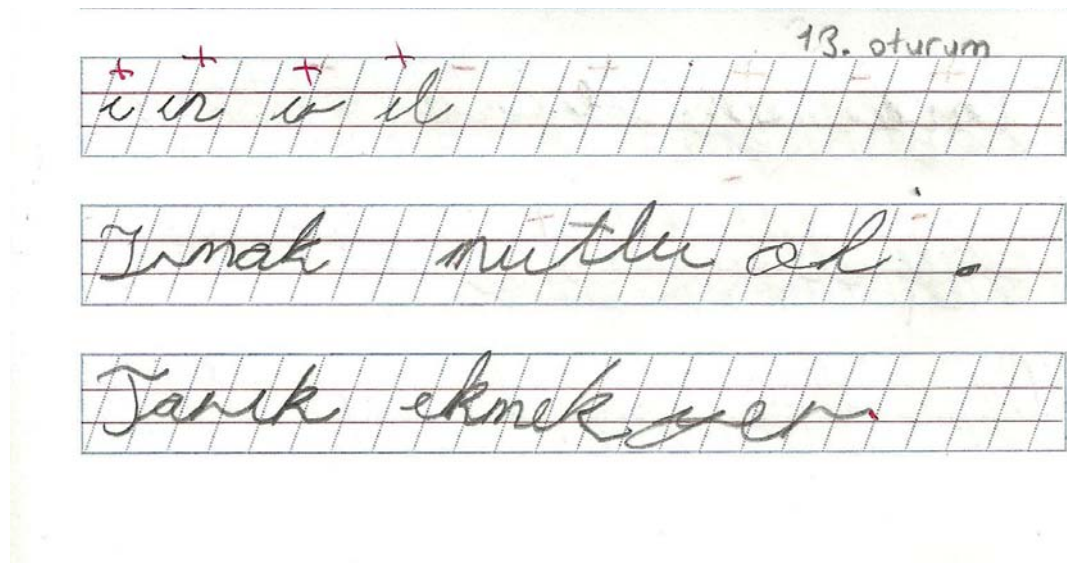 13. oturum
ı ır ıs ıl
Irmak mutlu ol.
Tarık ekmek yer.